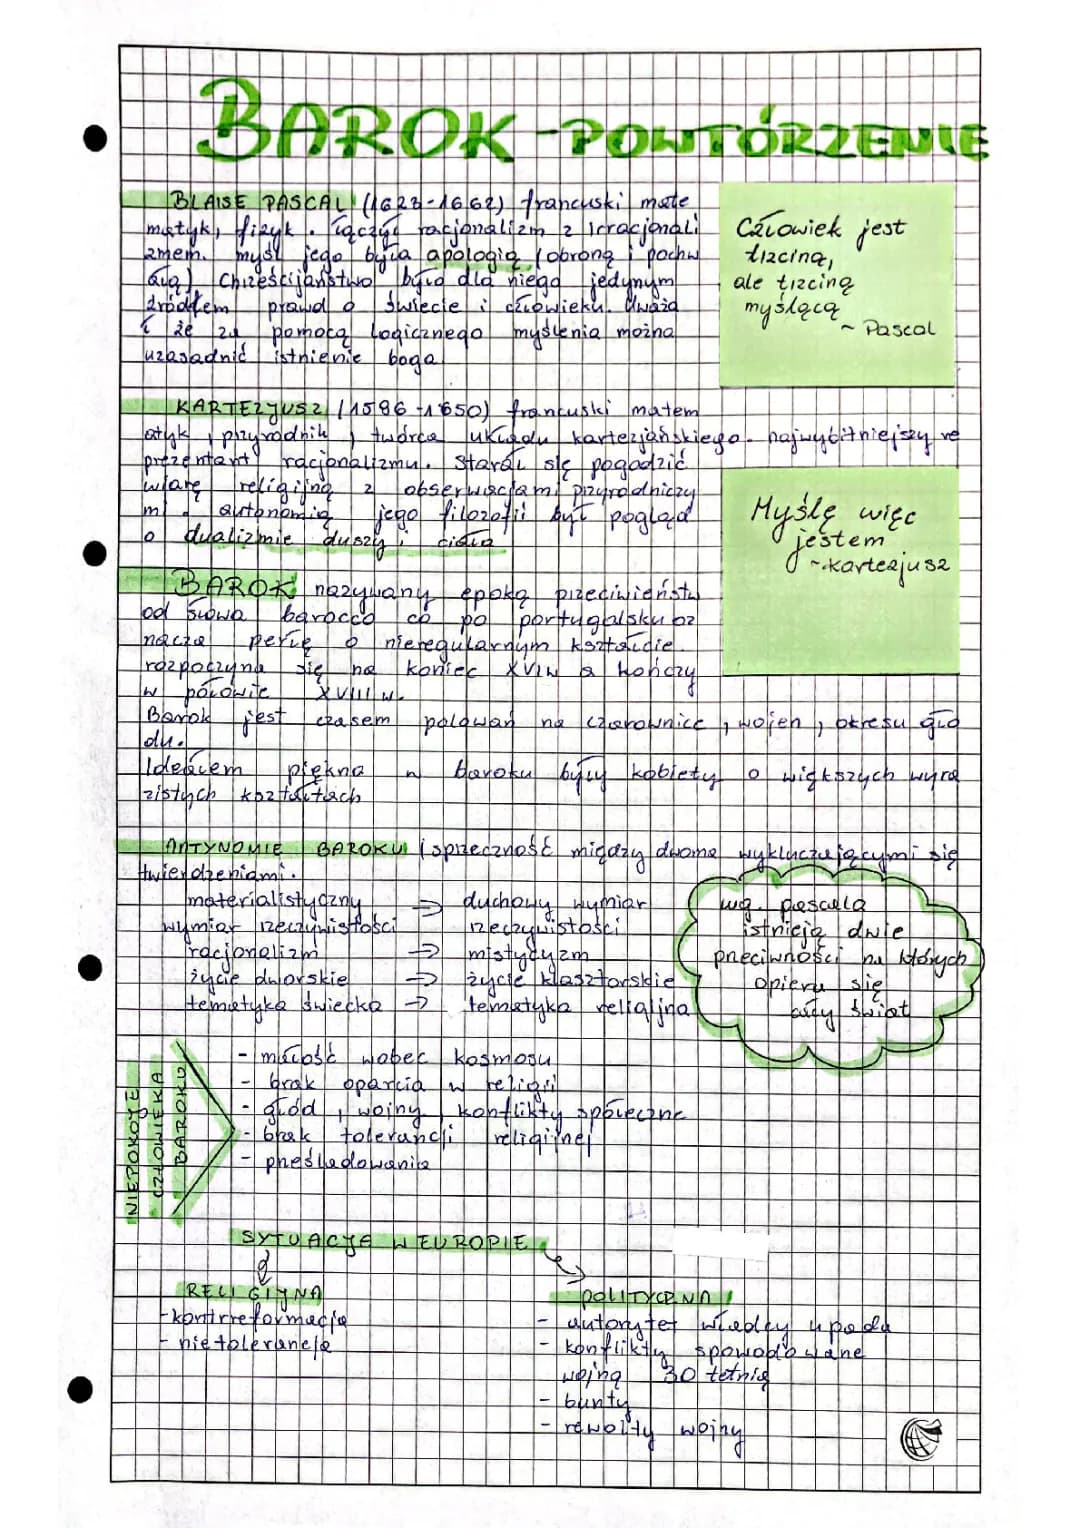 BAROK - POWTÓRZENIE
BLAISE PASCAL (1623-1662) francuski mate
matyk, fizyk. łączył racjonalizm z irracjonali
zmem. myśl jego była apologią (obroną i pochw
ałą). Chrześcijaństwo było dla niego jedynym
źródłem prawd o świecie i człowieku. Uważa
ł że za pomocą logicznego myślenia można
uzasadnić istnienie boga
Człowiek jest
trzciną,
ale trzciną
myślącą
~ Pascal
KARTEZJUSZ (1596-1650) francuski matem
atyk, przyrodnik, twórca układu kartezjańskiego. najwybitniejszy re
prezentant racjonalizmu. Starał się pogodzić
wiarę religijną z obserwacjami przyrodniczy
mi. autonomią jego filozofii był pogląd
o dualizmie duszy i ciała
Myślę więc
jestem
~kartezjusz
BAROK nazywany epoką przeciwieństw
od słowa barocco co po portugalsku oz
nacza perłę o nieregularnym kształcie.
rozpoczyna się na koniec XVI w a kończy
w połowie XVIII w.
Barok jest czasem polowań na czarownice, wojen, okresu gło
du.
Ideałem piękna w baroku były kobiety o większych wyra
zistych kształtach
ANTYNOMIE BAROKU (sprzeczność między dwoma wykluczającymi się
twierdzeniami.
materialistyczny → duchowy wymiar
wymiar rzeczywistości rzeczywistości
racjonalizm → mistycyzm
życie dworskie → życie klasztorskie
tematyka świecka → tematyka religijna
wg. pascala
istnieją dwie
przeciwności na których
opiera się
cały świat
NIEPOKOJE
CZŁOWIEKA
BAROKU
- małość wobec kosmosu
- brak oparcia w religii
- głód, wojny, konflikty społeczne
- brak tolerancji religijnej
- prześladowania
SYTUACJA W EUROPIE
RELIGIJNA
- kontrreformacja
- nietolerancja
POLITYCZNA
- autorytet władcy upada
- konflikty spowodowane
wojną 30 letnią
- bunty
- rewolty wojny